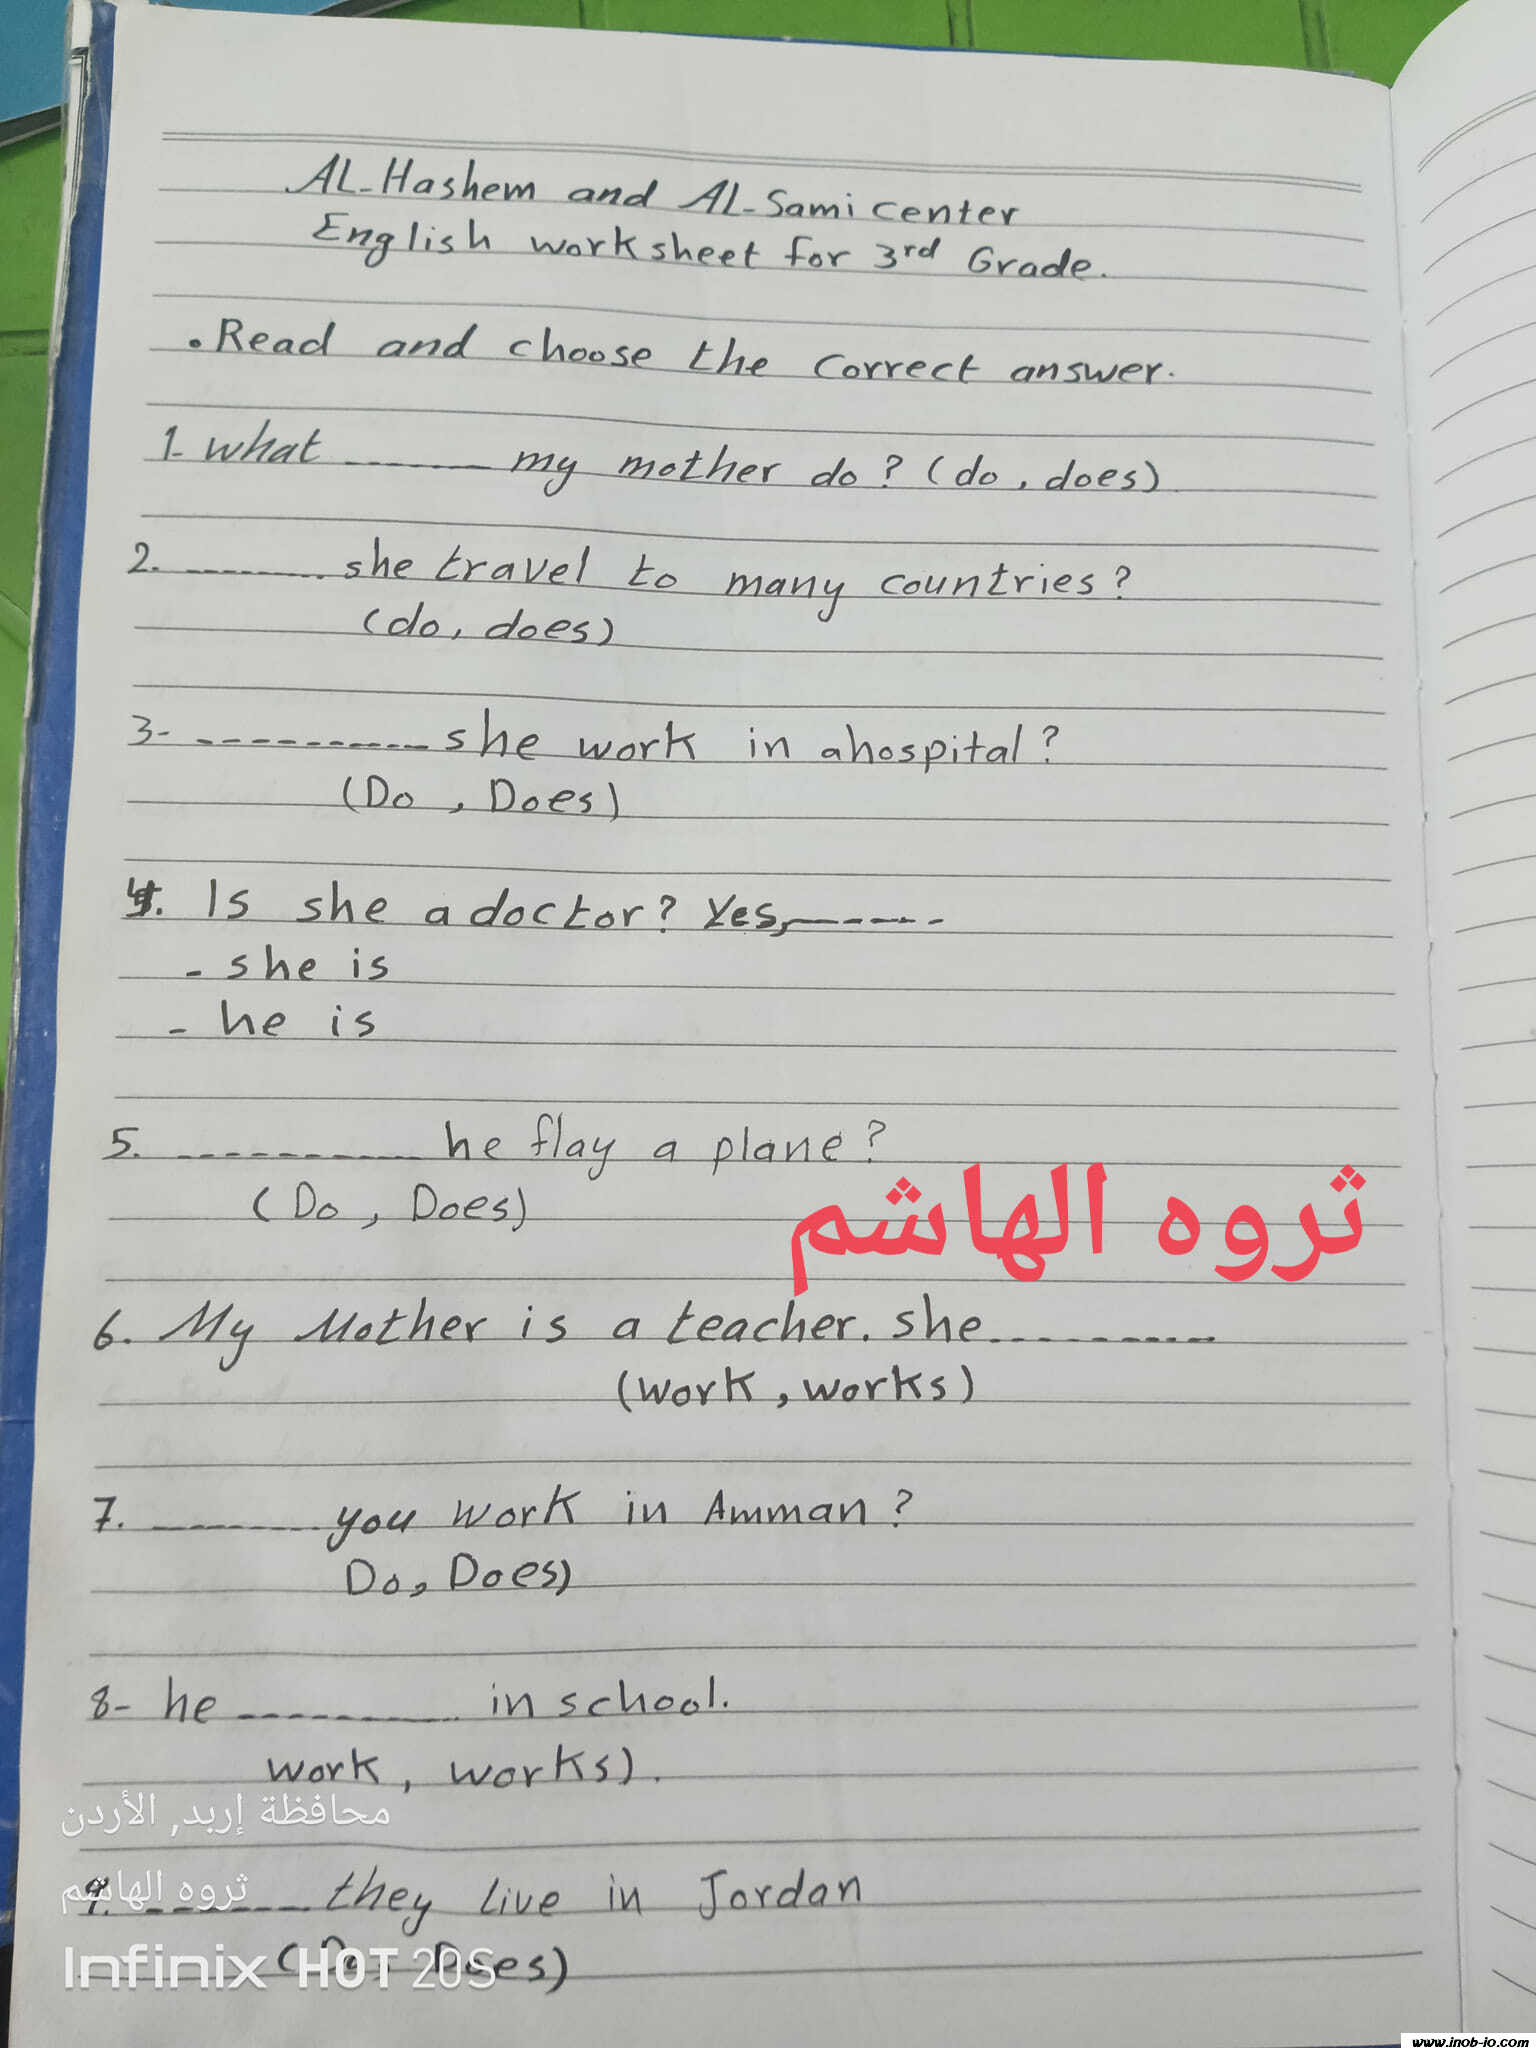 AL-Hashem and AL-Sami center
English worksheet for 3rd Grade.
.Read and choose the correct answer.
1- what ------- my mother do? (do, does)
2. -------- she travel to many countries?
(do, does)
3- ---------- she work in ahospital?
(Do, Does)
4. Is she a doctor? Yes,------
- she is
- he is
5. ---------- he flay a plane?
(Do, Does)
ثروه الهاشم
6. My Mother is a teacher. she---------
(work, works)
7. -------- you work in Amman?
Do, Does)
8- he --------- in school.
work, works).
محافظة إربد, الأردن
ثروه الهاشم
9. ------- they live in Jordan
(Do, Does)
Infinix HOT 20S
www.inob-jo.com